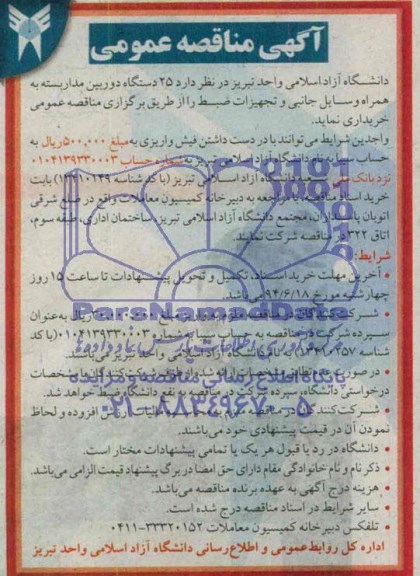 آگهی مناقصه عمومی
دانشگاه آزاد اسلامی واحد تبریز در نظر دارد ۲۵ دستگاه دوربین مداربسته به
همراه وسایل جانبی و تجهیزات ضبط را از طریق برگزاری مناقصه عمومی
خریداری نماید.
واجدین شرایط می‌توانند با در دست داشتن فیش واریزی به مبلغ ۵۰۰,۰۰۰ ریال به
حساب سیبا به نام دانشگاه آزاد اسلامی تبریز به شماره حساب ۰۱۰۴۱۳۹۳۳۰۰۰۳
نزد بانک ملی شعبه دانشگاه آزاد اسلامی تبریز (با کد شناسه ۱۳۴۱۰۱۴۹) بابت
خرید اسناد مناقصه با مراجعه به دبیرخانه کمیسیون معاملات واقع در ضلع شرقی
اتوبان پاسداران، مجتمع دانشگاه آزاد اسلامی تبریز، ساختمان اداری، طبقه سوم،
اتاق ۳۲۲ در مناقصه شرکت نمایند.
شرایط:
• آخرین مهلت خرید اسناد، تکمیل و تحویل پیشنهادات تا ساعت ۱۵ روز
چهارشنبه مورخ ۹۴/۶/۱۸ می‌باشد.
• شرکت کنندگان در مناقصه ملزم به واریز مبلغ ریال به عنوان
سپرده شرکت در مناقصه به حساب سیبا به شماره ۰۱۰۴۱۳۹۳۳۰۰۰۳ (با کد
شناسه ) به نام دانشگاه آزاد اسلامی واحد تبریز می‌باشند.
• در صورت عدم تطابق مشخصات ارائه شده از طرف شرکت کنندگان با مشخصات
درخواستی دانشگاه، سپرده شرکت در مناقصه به نفع دانشگاه ضبط خواهد شد.
• شرکت کنندگان در مناقصه ملزم به مالیات بر ارزش افزوده و لحاظ
نمودن آن در قیمت پیشنهادی خود می‌باشند.
• دانشگاه در رد یا قبول هر یک یا تمامی پیشنهادات مختار است.
• ذکر نام و نام خانوادگی مقام دارای حق امضا در برگ پیشنهاد قیمت الزامی می‌باشد.
• هزینه درج آگهی به عهده برنده مناقصه می‌باشد.
• سایر شرایط در اسناد مناقصه درج شده است.
• تلفکس دبیرخانه کمیسیون معاملات ۳۳۳۲۰۱۵۲-۰۴۱۱
اداره کل روابط عمومی و اطلاع رسانی دانشگاه آزاد اسلامی واحد تبریز
ParsNamadData
پایگاه اطلاع رسانی مناقصه و مزایده
۰۲۱-۸۸۳۴۹۶۷۰-۵